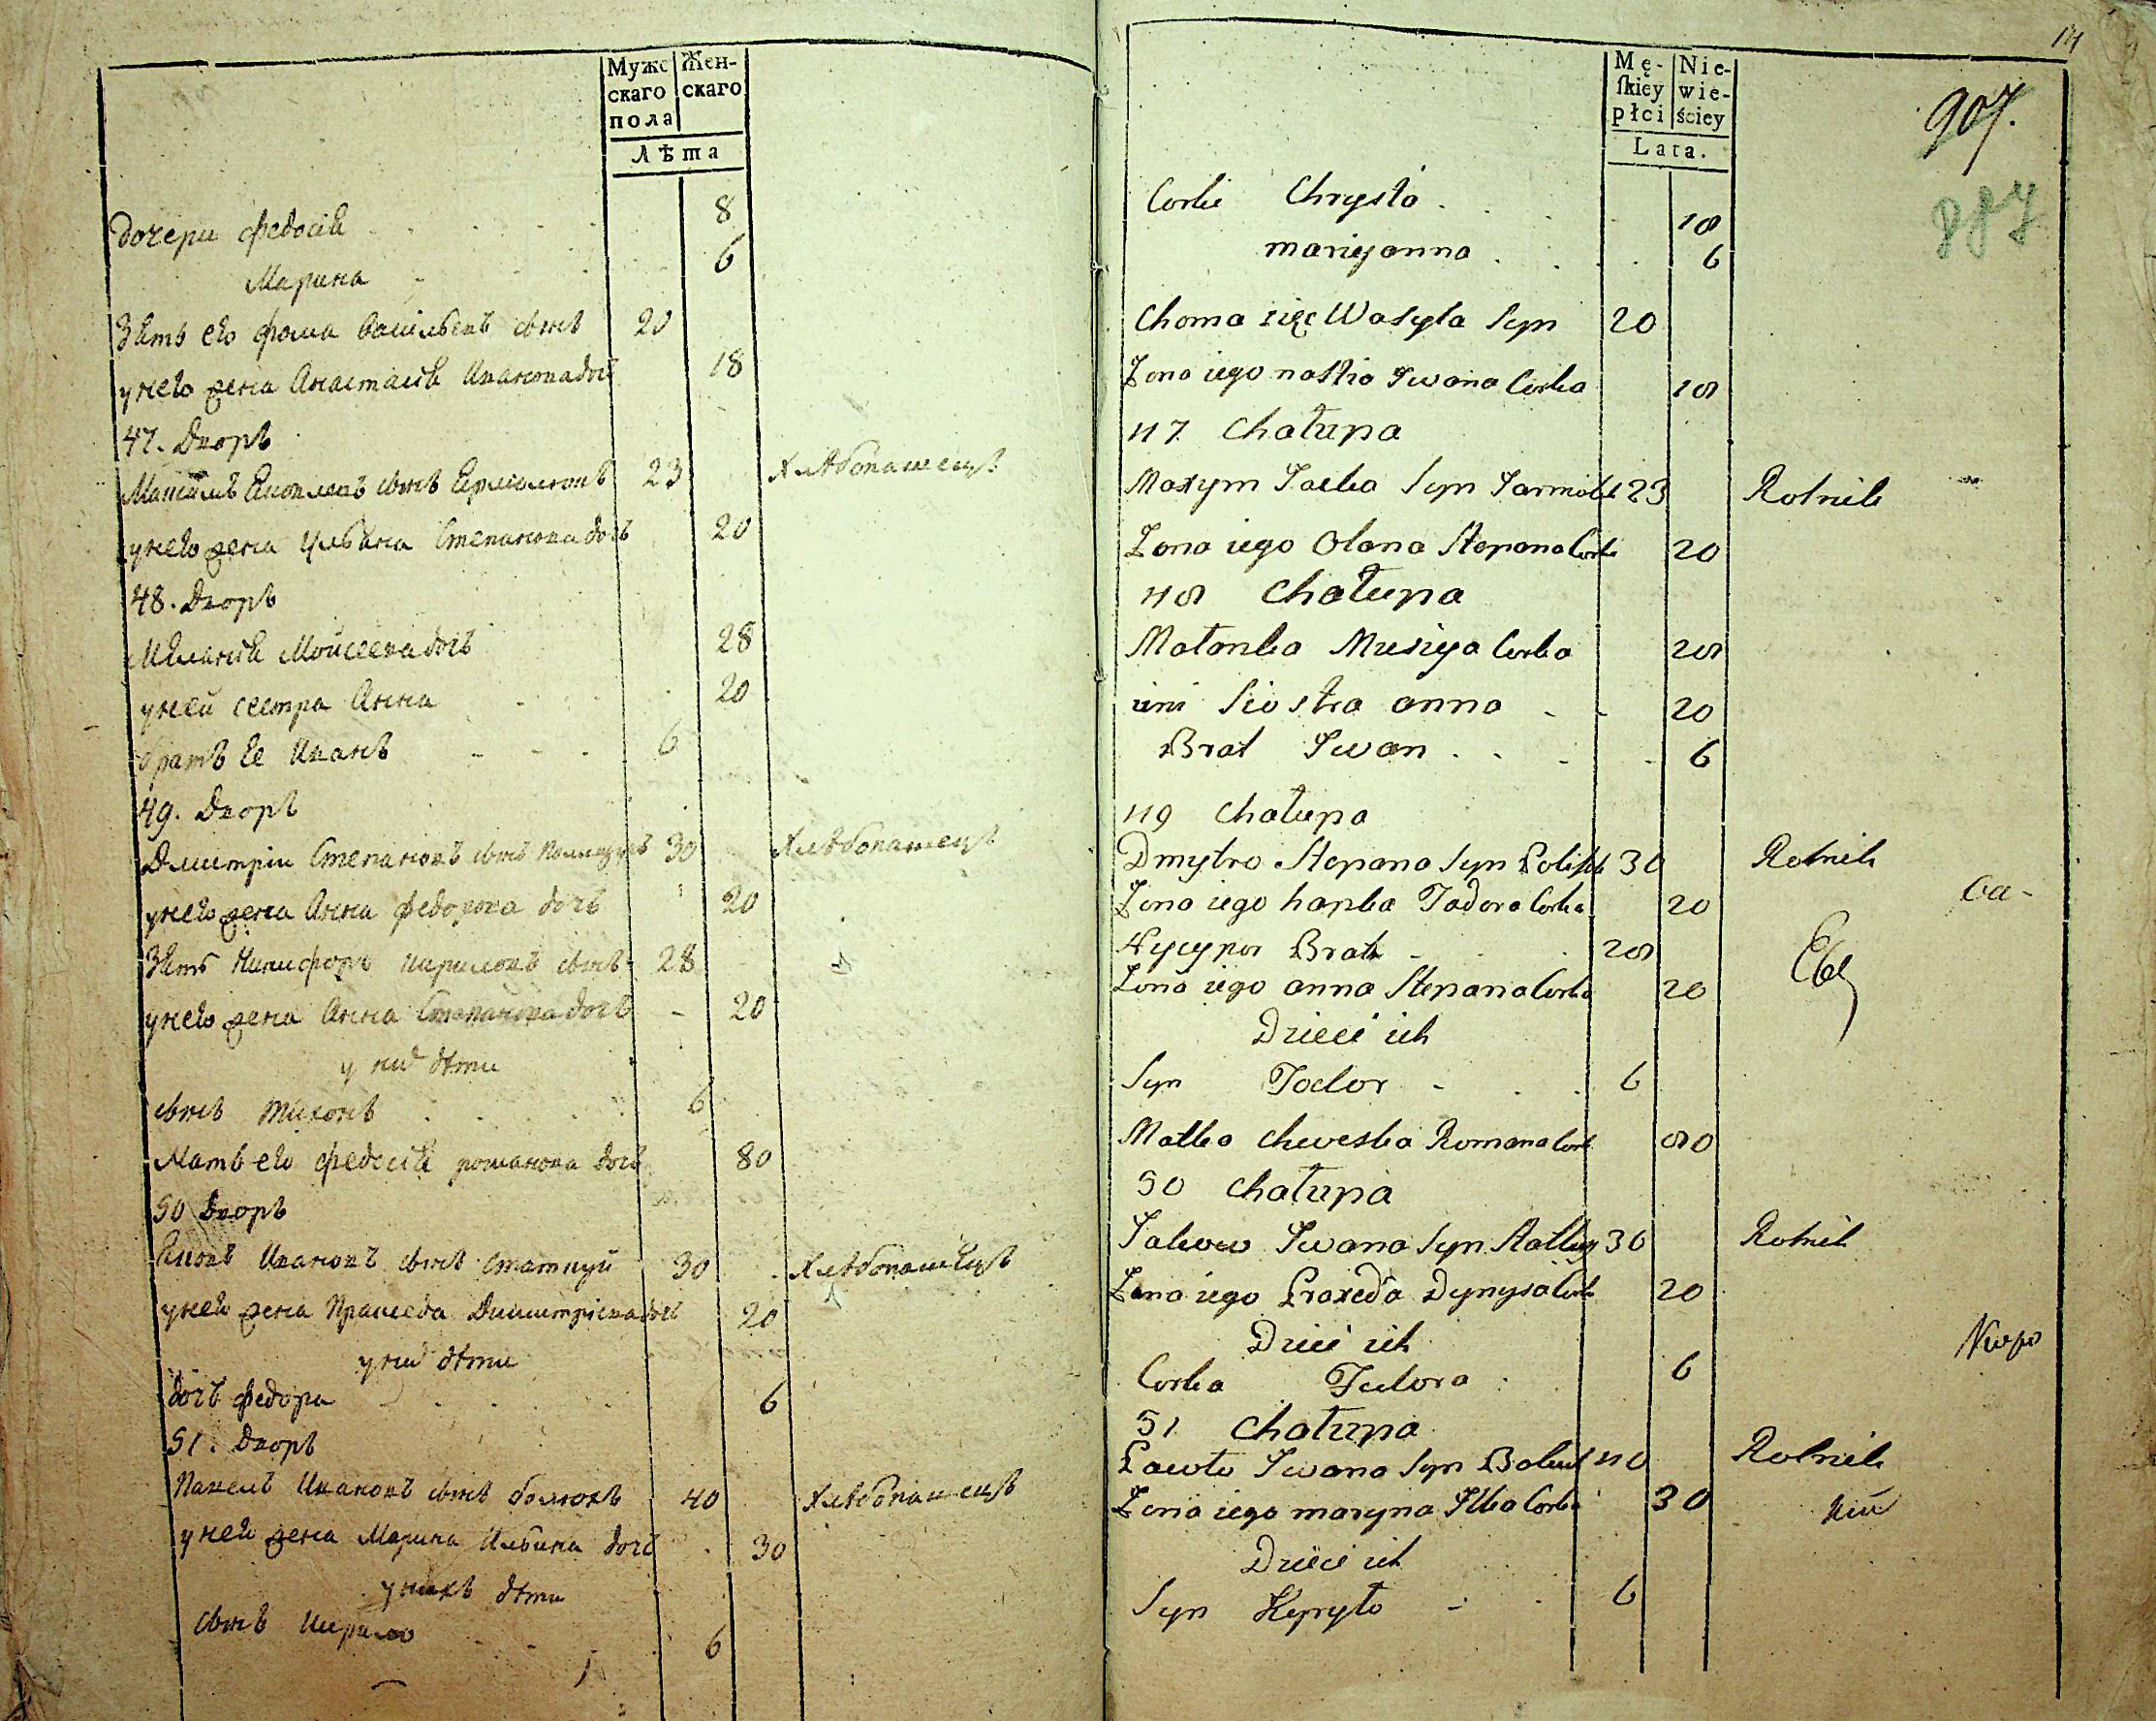 Мужескаго пола
Женскаго
Лѣта
дочери Федосіа 8
Марина 6
Зять его Фома Васильевъ сынъ 20
у него жена Анастасіа Иванова дочь 18
47. Дворъ
Максимъ Яковлевъ сынъ 23 Хлѣбопашецъ
у него жена Ульяна Степанова дочь 20
48. Дворъ
Меланія Мойсеева дочь 28
у ней сестра Анна 20
братъ ее Иванъ 6
49. Дворъ
Дмитрій Степановъ сынъ 30 Хлѣбопашецъ
у него жена Анна Федорова дочь 20
Зять Никифоръ Кириловъ сынъ 28
у него жена Анна Степанова дочь 20
у них дѣти
сынъ Тихонъ 6
Мать его Федосіа романова дочь 80
50 Дворъ
Яковъ Ивановъ сынъ 30 Хлѣбопашецъ
у него жена Пракседа Димитріева дочь 20
у них дѣти
дочь Федора 6
51. Дворъ
Павелъ Ивановъ сынъ 40 Хлѣбопашецъ
у него жена Марина Ильина дочь 30
у нихъ дѣти
сынъ Кирило 6
Męſkiey płci
Niewieściey
Lata.
907.
Corki Chrysta 18
mariyanna 6
Choma zięc Wasyla Syn 20
Zona iego nastia Iwana Corka 18
47 Chałupa
Maxym Jacka Syn 23 Rolnik
Zona iego Olana Stepana Corka 20
48 Chałupa
Małanka Musiya Corka 28
Siostra anna 20
Brat Iwan 6
49 Chałupa
Dmytro Stepana Syn 30 Rolnik
Zona iego hapka Todora Corka 20
Nycypor Brat 28
Zona iego anna Stepana Corka 20
Dzieci ich
Syn Todor 6
Matka Chweska Romana Cork 80
50 Chałupa
Jakow Iwana Syn 30 Rolnik
Zona iego Praxeda Dynysa Cork 20
Dzieci ich
Corka Tudora 6
51 Chałupa
Pawło Iwana Syn 40 Rolnik
Zona iego maryna Ilka Corka 30
Dzieci ich
Syn Kyryło 6